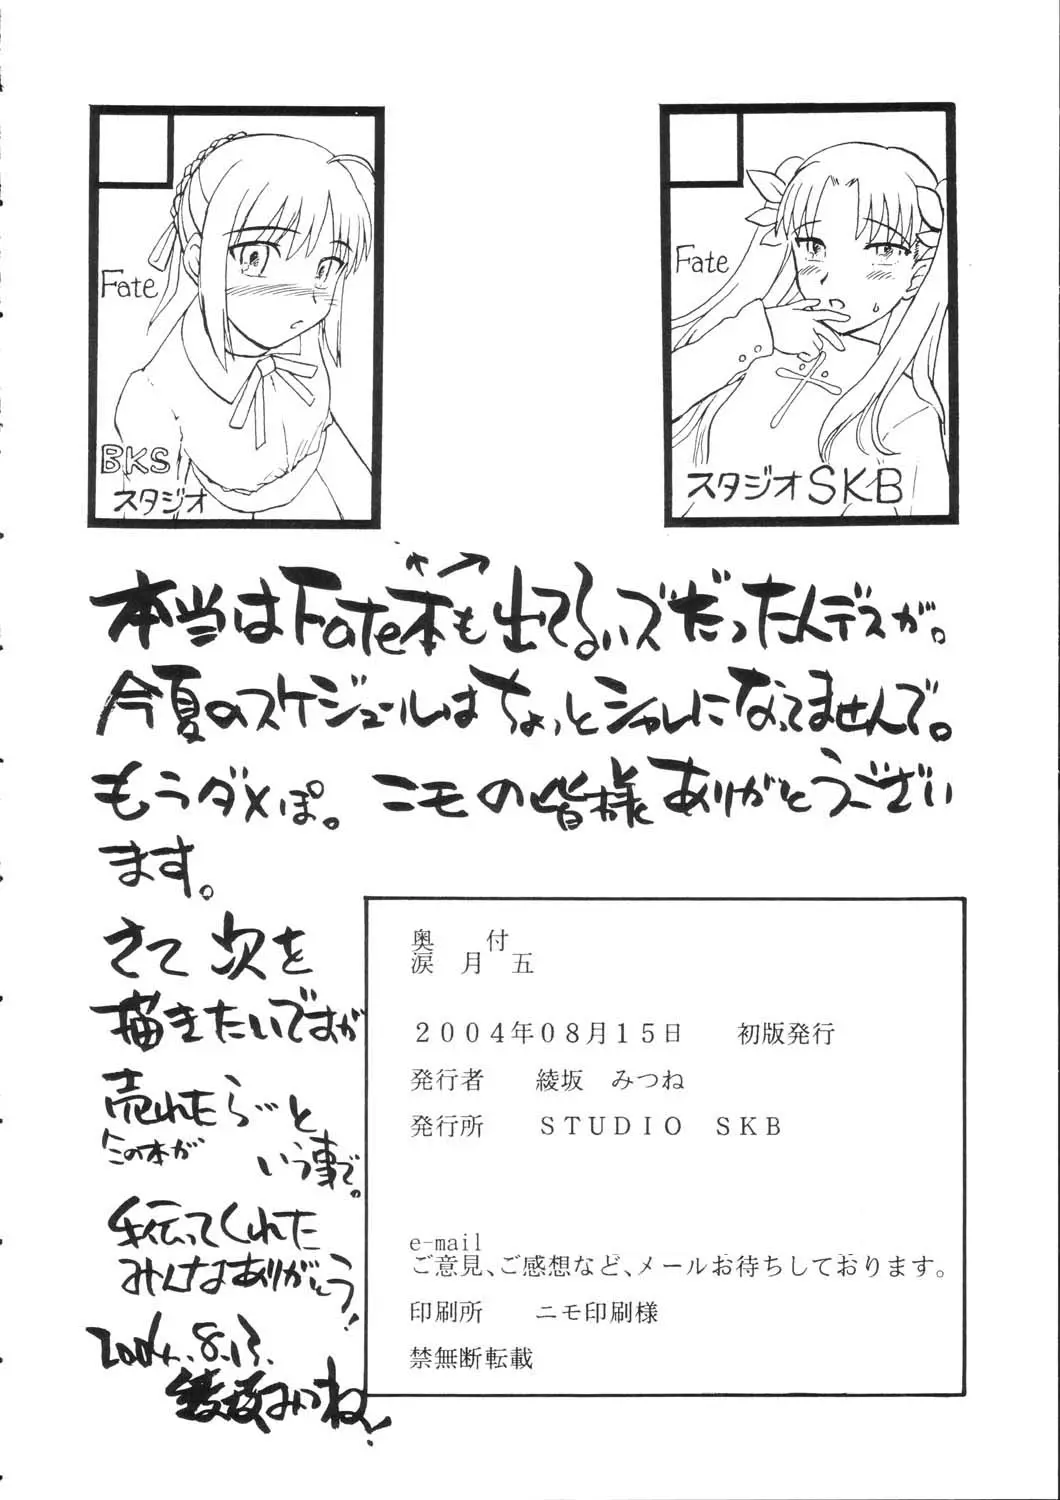 Fate
BKS
スタジオ
Fate
スタジオSKB
本当はFate本も出てるハズだったんデスが。
今夏のスケジュールはちょっとシャレになってませんで。
もうダメぽ。ニモの皆様ありがとうござい
ます。
さて次を
描きたいですが
売れたら…と
この本が
いう事で。
手伝ってくれた
みんなありがとう!
2004.8.13.
綾坂みつね!
奥　付
涙　月　五
２００４年０８月１５日　初版発行
発行者　綾坂　みつね
発行所　ＳＴＵＤＩＯ　ＳＫＢ
e-mail
ご意見、ご感想など、メールお待ちしております。
印刷所　ニモ印刷様
禁無断転載